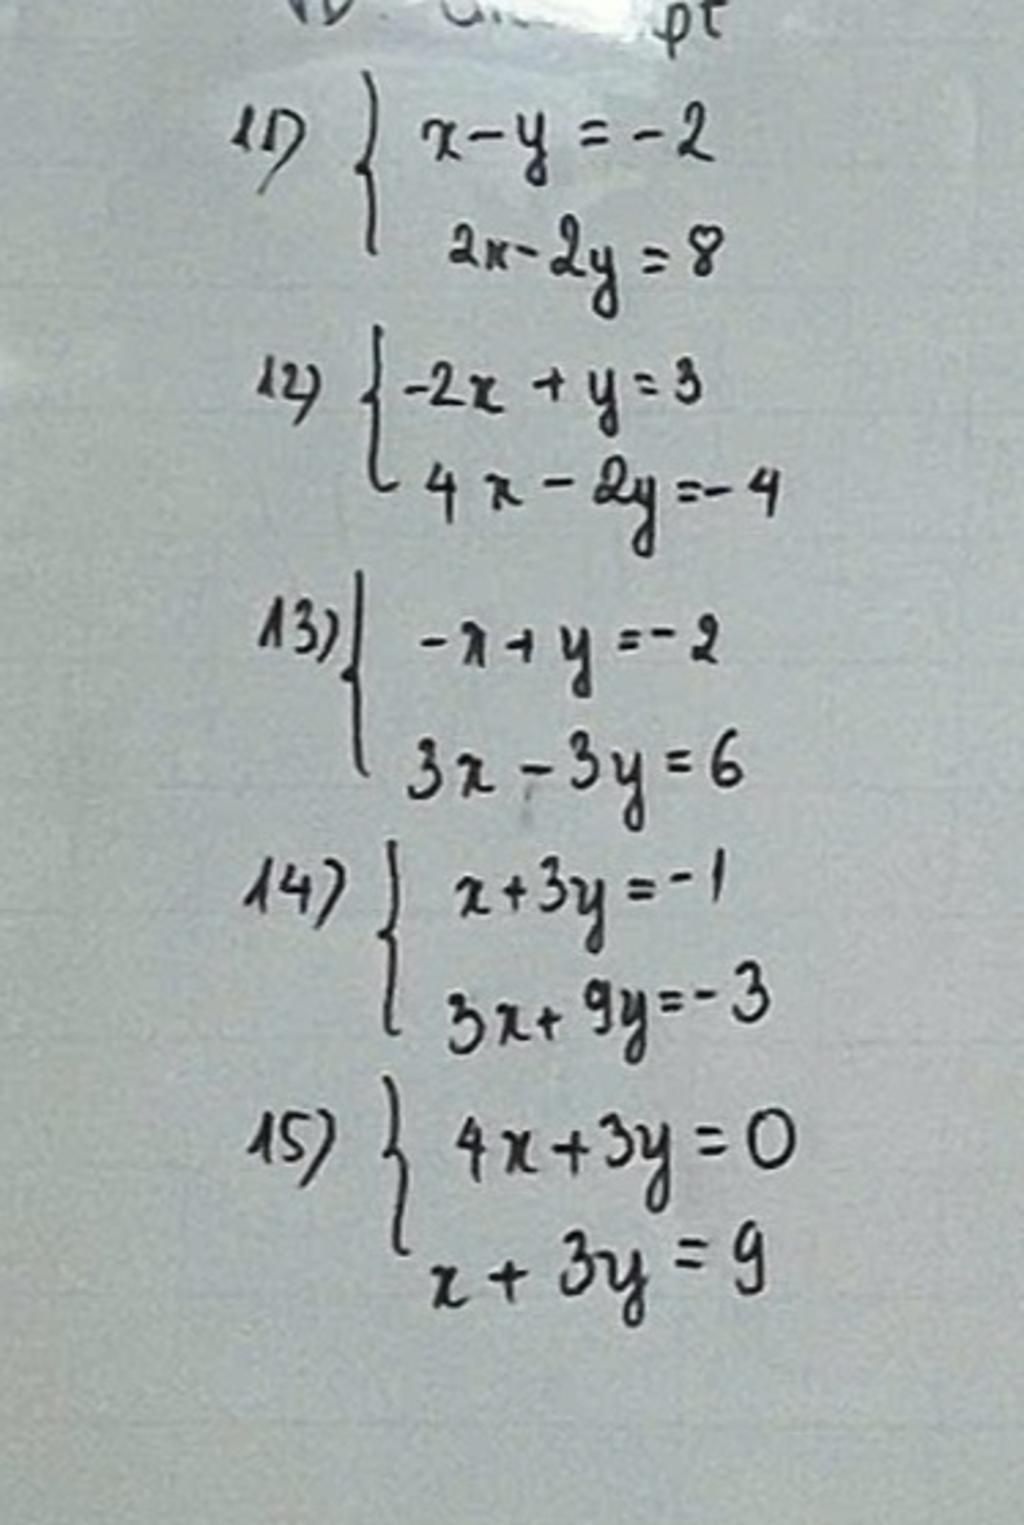 pt
11) { x - y = -2
2x - 2y = 8
12) { -2x + y = 3
4x - 2y = -4
13) { -x + y = -2
3x - 3y = 6
14) { x + 3y = -1
3x + 9y = -3
15) { 4x + 3y = 0
x + 3y = 9